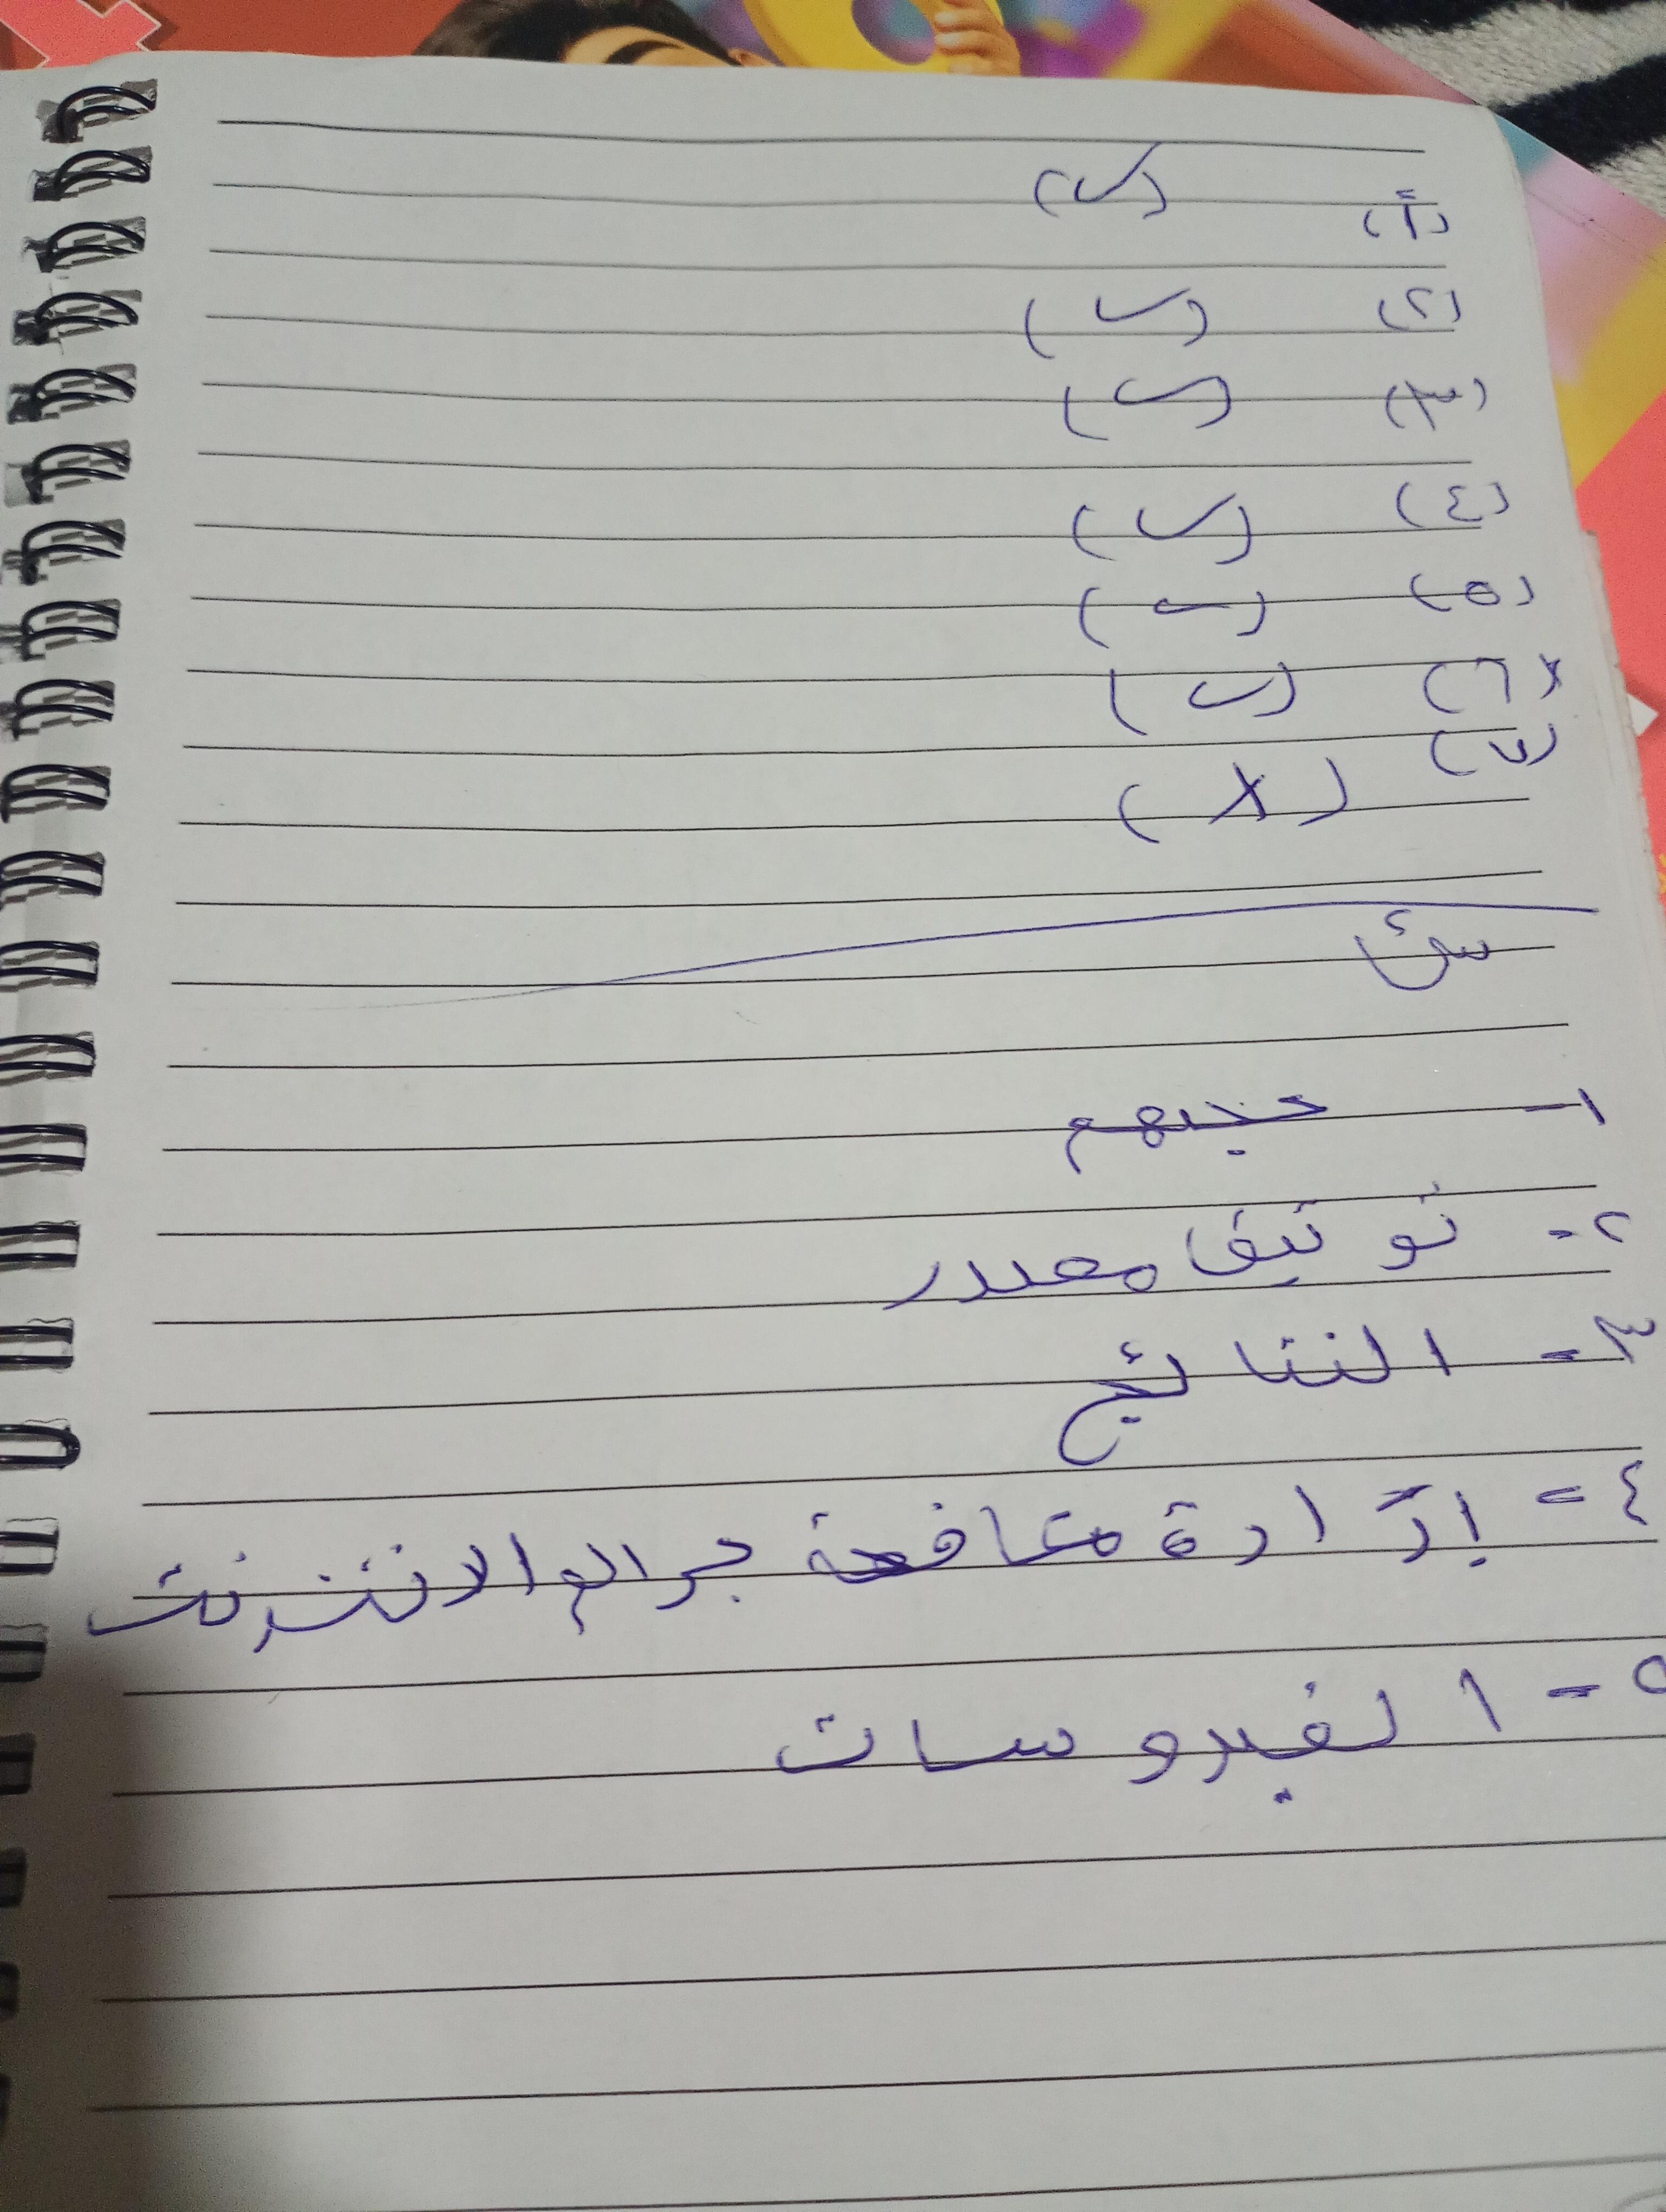 (أ) (✓)
(٢) (✓)
(٣) (✓)
(٤) (✓)
(٥) (✓)
(٦) (✓)
(٧) (X)
١- حجبهم
٢- توثيق مصدر
٣- النتائج
٤- إدارة مكافحة جرائم الانترنت
٥- الفيروسات